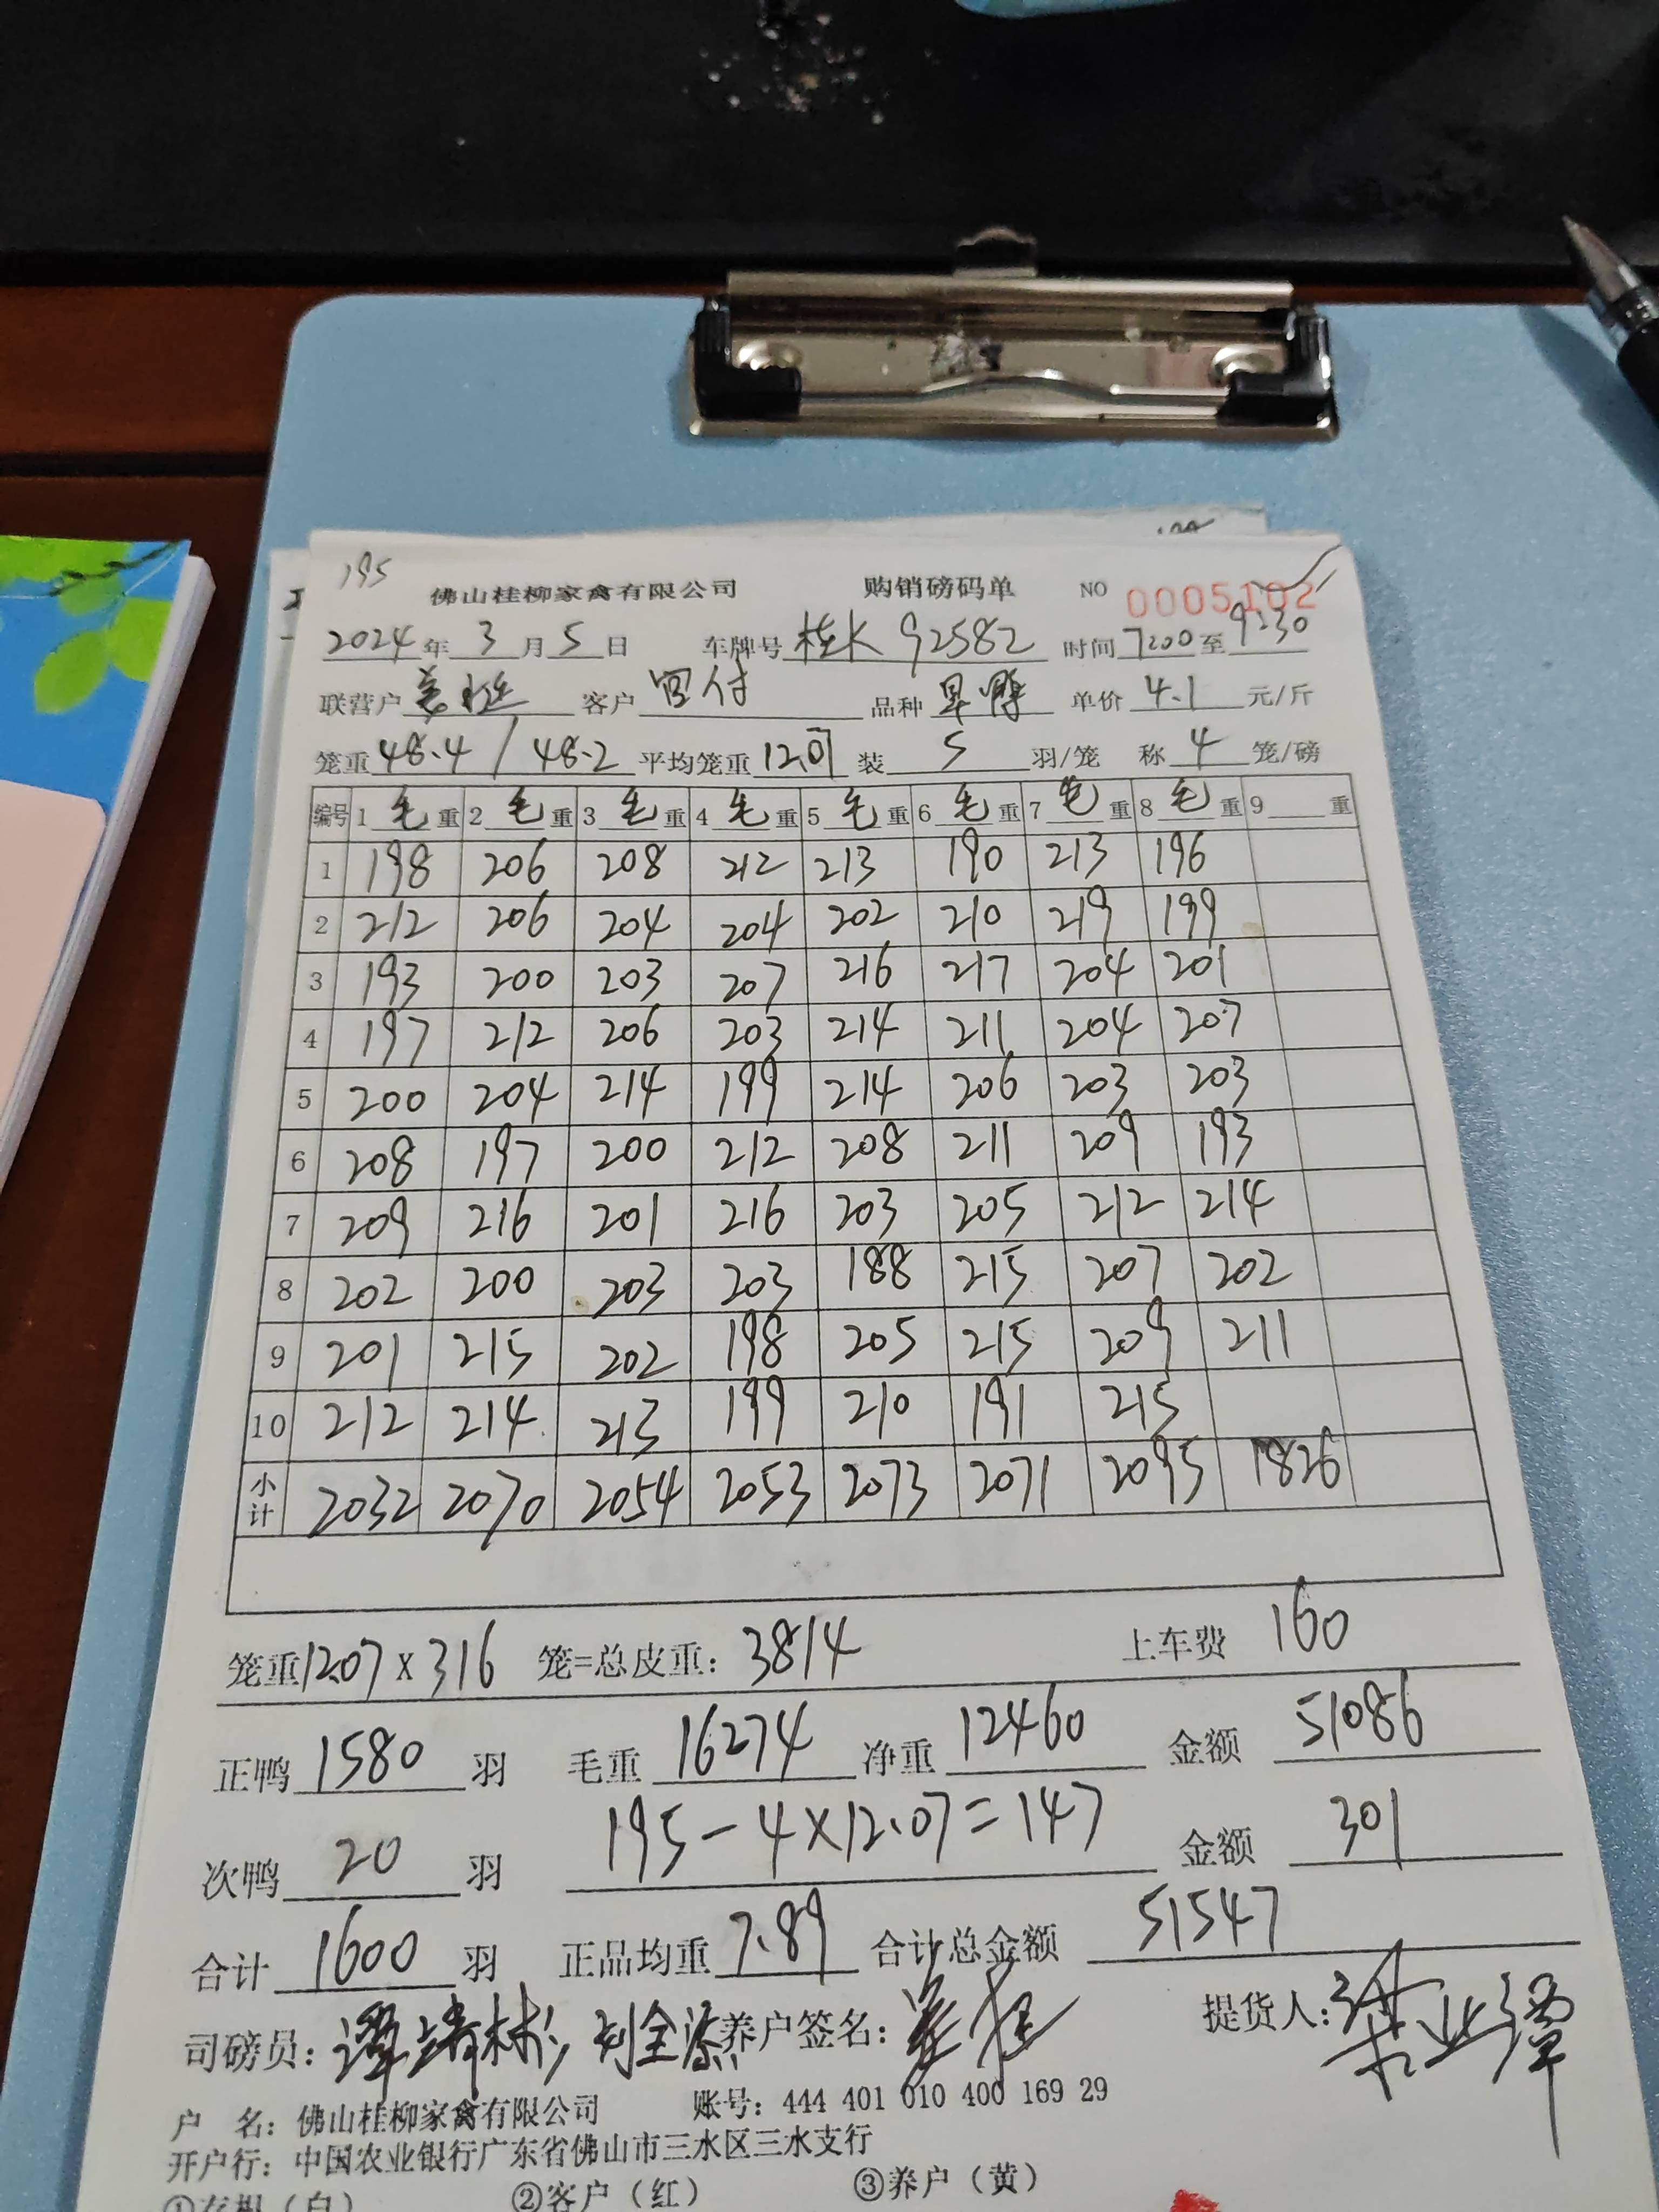 195
佛山桂柳家禽有限公司 购销磅码单 NO 0005102
2024年3月5日 车牌号 桂K 92582 时间 7:00 至 9:30
联营户 客户 品种 单价 4.1 元/斤
笼重 48.4 / 48.2 平均笼重 12.07 装 5 羽/笼 称 4 笼/磅
编号 1 毛 重 2 毛 重 3 毛 重 4 毛 重 5 毛 重 6 毛 重 7 毛 重 8 毛 重 9 重
1 198 206 208 212 213 190 213 196
2 212 206 204 204 202 210 219 199
3 193 200 203 207 216 217 204 201
4 197 212 206 203 214 211 204 207
5 200 204 214 199 214 206 203 203
6 208 197 200 212 208 211 209 193
7 209 216 201 216 203 205 212 214
8 202 200 203 203 188 215 207 202
9 201 215 202 198 205 215 209 211
10 212 214 213 199 210 191 215
小计 2032 2070 2054 2053 2073 2071 2095 1826
笼重 12.07 x 316 笼=总皮重: 3814 上车费 160
正鸭 1580 羽 毛重 16274 净重 12460 金额 51086
次鸭 20 羽 195-4×12.07=147 金额 301
合计 1600 羽 正品均重 7.89 合计总金额 51547
司磅员: 养户签名: 提货人:
户 名: 佛山桂柳家禽有限公司 账号: 444 401 010 400 169 29
开户行: 中国农业银行广东省佛山市三水区三水支行
①存根(白) ②客户(红) ③养户(黄)